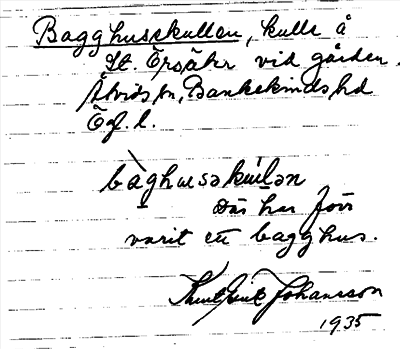 Bagghusekullen, kulle å
St. Örsäkr vid gården.
Åtvids sn, Bankekinds hd
Ög. l.
bàghusəkúlən
Där har förr
varit ett bagghus.
Knut Erik Johansson
1935